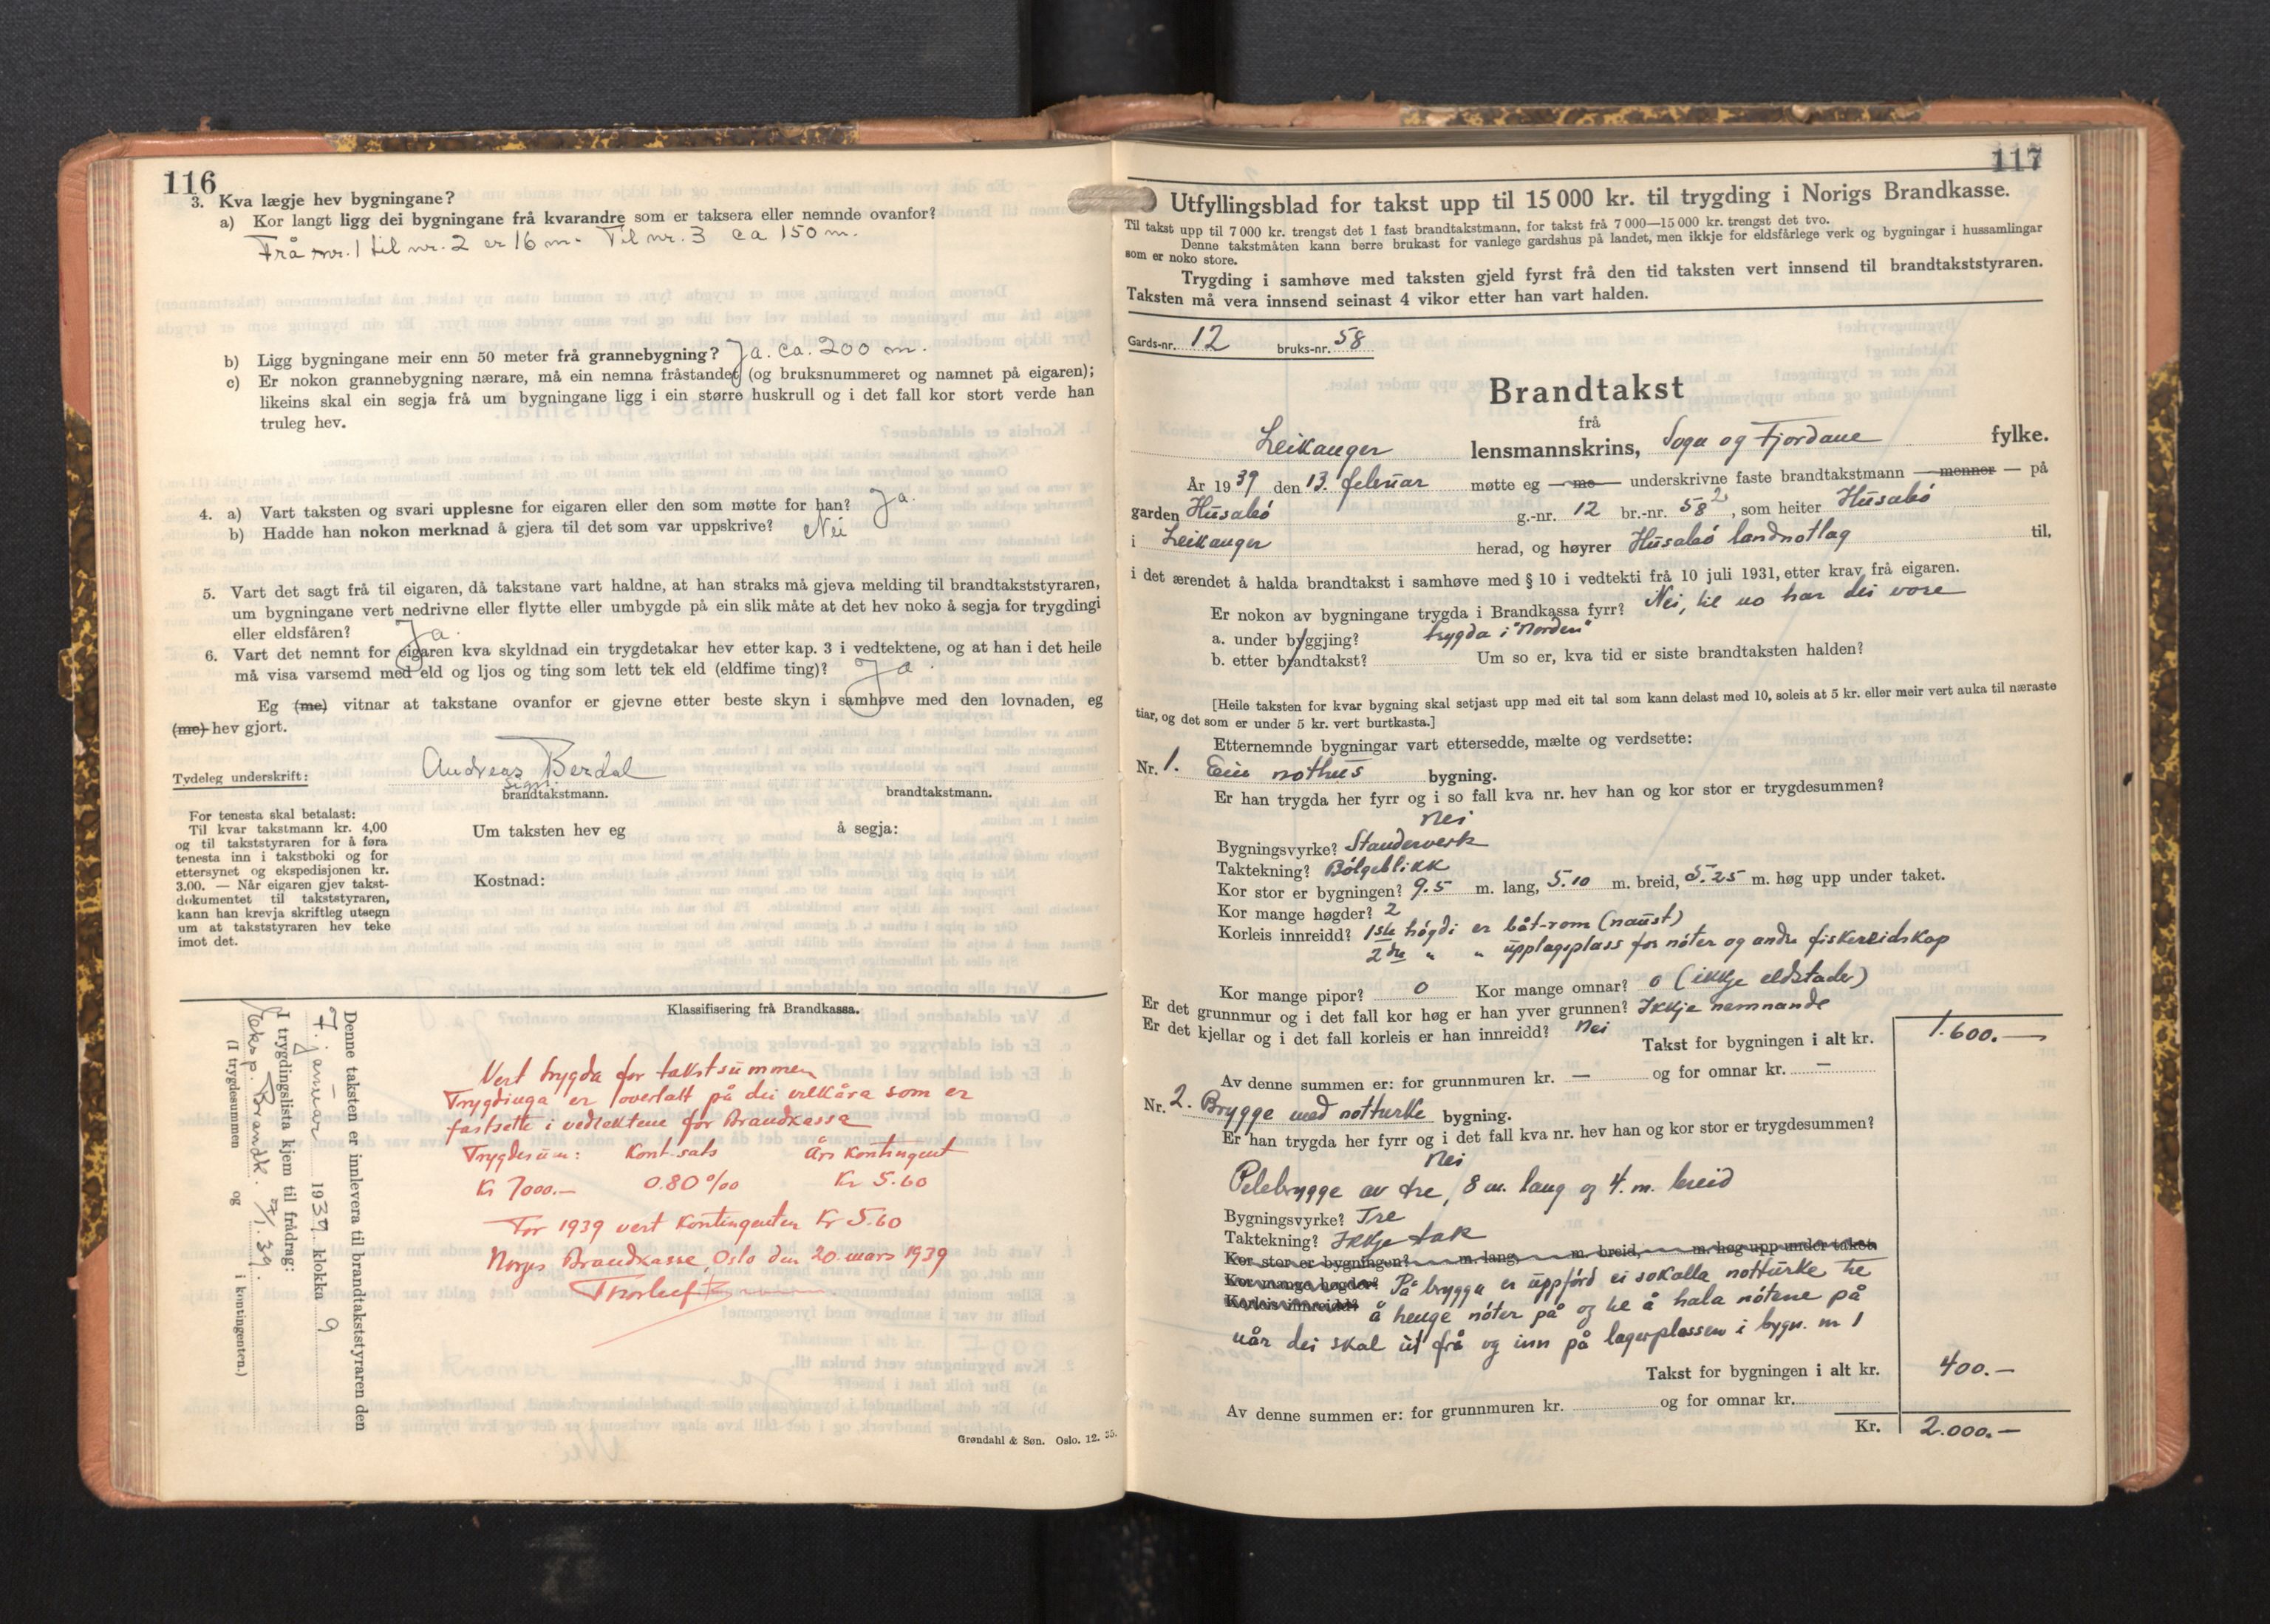 116
3. Kva lægje hev bygningane?
a) Kor langt ligg dei bygningane frå kvarandre som er taksera eller nemnde ovanfor?
Frå nr. 1 til nr. 2 er 16 m. Til nr. 3 ca 150 m.
b) Ligg bygningane meir enn 50 meter frå grannebygning? Ja. Ca. 200 m.
c) Er nokon grannebygning nærare, må ein nemna fråstandet (og bruksnummeret og namnet på eigaren);
likeins skal ein segja frå um bygningane ligg i ein større huskrull og i det fall kor stort verde han
truleg hev.
4. a) Vart taksten og svari upplesne for eigaren eller den som møtte for han? Ja.
b) Hadde han nokon merknad å gjera til det som var uppskrive? Nei
5. Vart det sagt frå til eigaren, då takstane vart haldne, at han straks må gjeva melding til brandtakststyraren,
um bygningane vert nedrivne eller flytte eller umbygde på ein slik måte at det hev noko å segja for trygdingi
eller eldsfåren? Ja.
6. Vart det nemnt for eigaren kva skyldnad ein trygdetakar hev etter kap. 3 i vedtektene, og at han i det heile
må visa varsemd med eld og ljos og ting som lett tek eld (eldfime ting)? Ja.
Eg (me) vitnar at takstane ovanfor er gjevne etter beste skyn i samhøve med den lovnaden, eg
(me) hev gjort.
Tydeleg underskrift: Andreas Berdal
sign.
brandtakstmann. brandtakstmann.
For tenesta skal betalast:
Til kvar takstmann kr. 4,00
og til takststyraren for å føra
tenesta inn i takstboki og for
ettersynet og ekspedisjonen kr.
3.00. — Når eigaren gjev takst-
dokumentet til takststyraren,
kann han krevja skriftleg utsegn
um at takststyraren hev teke
imot det.
Um taksten hev eg å segja:
Kostnad:
Klassifisering frå Brandkassa.
Denne taksten er innlevera til brandtakststyraren den
7. januar 1939 klokka 9
I trygdingslista kjem til frådrag:
Eksp. Brandk. 7/1. 39.
(I trygdesummen og i kontingenten.)
Vert trygda for takstsummen
Trygdinga er overtatt på dei vilkåra som er
fastsette i vedtektene for Brandkassa
Trygdesum: Kont. sats Års kontingent
Kr 7000.- 0.80 ‰ Kr 5.60
For 1939 vert kontingenten Kr 5.60
Norges Brandkasse, Oslo den 20. mars 1939
Grøndahl & Søn. Oslo. 12. 35.
117
Utfyllingsblad for takst upp til 15 000 kr. til trygding i Norigs Brandkasse.
Til takst upp til 7 000 kr. trengst det 1 fast brandtakstmann, for takst frå 7 000—15 000 kr. trengst det tvo.
Denne takstmåten kann berre brukast for vanlege gardshus på landet, men ikkje for eldsfårlege verk og bygningar i hussamlingar
som er noko store.
Trygding i samhøve med taksten gjeld fyrst frå den tid taksten vert innsend til brandtakststyraren.
Taksten må vera innsend seinast 4 vikor etter han vart halden.
Gards-nr. 12 bruks-nr. 58
Brandtakst
frå
Leikanger lensmannskrins, Sogn og Fjordane fylke.
År 1939 den 13. februar møtte eg — me — underskrivne faste brandtakstmann — menner — på
garden Husabø g.-nr. 12 br.-nr. 58 2, som heiter Husabø
i Leikanger herad, og høyrer Husabø landnotlag til,
i det ærendet å halda brandtakst i samhøve med § 10 i vedtekti frå 10 juli 1931, etter krav frå eigaren.
Er nokon av bygningane trygda i Brandkassa fyrr? Nei, til no har dei vore
a. under byggjing? trygda i "Norden"
b. etter brandtakst? Um so er, kva tid er siste brandtaksten halden?
[Heile taksten for kvar bygning skal setjast upp med eit tal som kann delast med 10, soleis at 5 kr. eller meir vert auka til næraste
tiar, og det som er under 5 kr. vert burtkasta.]
Etternemnde bygningar vart ettersedde, mælte og verdsette:
Nr. 1. Ein nothus bygning.
Er han trygda her fyrr og i so fall kva nr. hev han og kor stor er trygdesummen?
Nei
Bygningsvyrke? Standerverk
Taktekning? Bølgeblikk
Kor stor er bygningen? 9.5 m. lang, 5.10 m. breid, 5.25 m. høg upp under taket.
Kor mange høgder? 2
Korleis innreidd? 1ste høgdi er båt-rom (naust)
2dre " " upplagsplass for nøter og andre fiskereidskap
Kor mange pipor? 0 Kor mange omnar? 0 (ikkje eldstader)
Er det grunnmur og i det fall kor høg er han yver grunnen? Ikkje nemnande
Er det kjellar og i det fall korleis er han innreidd? Nei
Takst for bygningen i alt kr. 1.600.—
Av denne summen er: for grunnmuren kr. — og for omnar kr. —
Nr. 2. Brygge med notturke bygning.
Er han trygda her fyrr og i det fall kva nr. hev han og kor stor er trygdesummen?
Nei
Pelebrygge av tre, 8 m. lang og 4. m. breid
Bygningsvyrke? Tre
Taktekning? Ikkje tak
Kor stor er bygningen? m. lang, m. breid, m. høg upp under taket.
Kor mange høgder? På brygga er uppførd ei sokalla notturke tre
Korleis innreidd? å henge nøter på og til å hala nøtene på
når dei skal ut frå og inn på lagerplassen i bygn. nr 1
Takst for bygningen i alt kr. 400.—
Av denne summen er: for grunnmuren kr. og for omnar kr.
Kr. 2.000.—